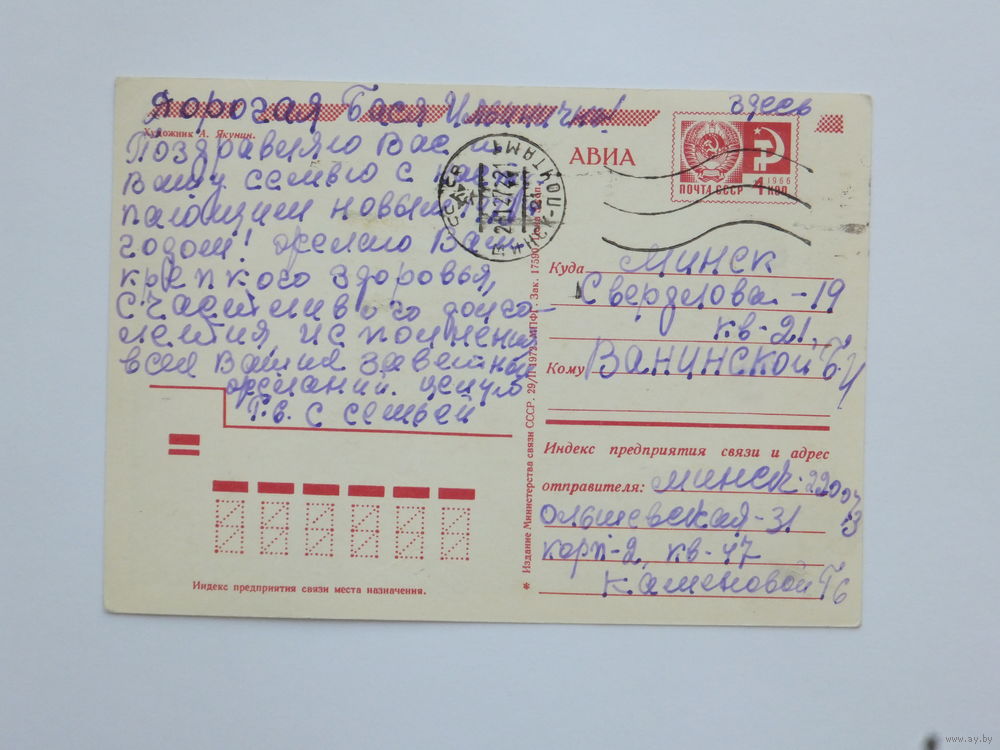 Дорогая Бася Ильинична!
здесь
Художник А. Якунин.
Поздравляю Вас и
Вашу семью с насту-
пающим новым
годом! желаю Вам
крепкого здоровья,
счастливого долго-
летия, исполнения
всех Ваших заветных
желаний. целую
Г.В. с семьей
АВИА
ПОЧТА СССР
1966
4 КОП
МИНСК ПОЧТАМТ
Куда Минск
Свердлова - 19
кв - 21.
Кому Ванинской Б. И
Индекс предприятия связи и адрес
отправителя: Минск 220073
Ольшевская - 31
корп - 2, кв - 47
Каменовой Гб
Индекс предприятия связи места назначения.
* Издание Министерства связи СССР. 29/II 1972. МПФГ. Зак. 17590
www.ay.by